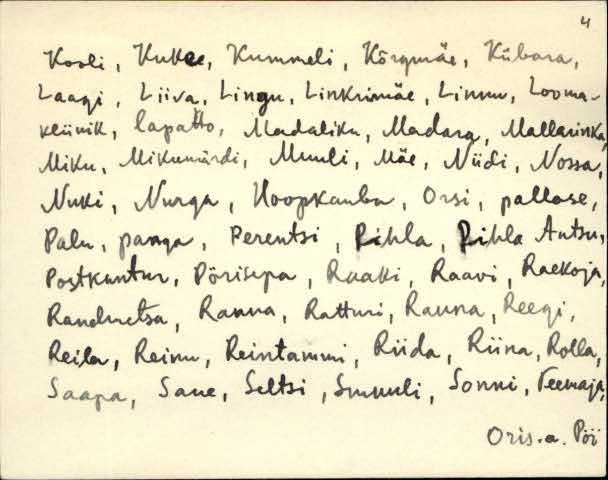 4
Kooli, Kukee, Kummeli, Kõrgmäe, Kübara,
Laagi, Liiva, Lingu, Linkrimäe, Linnu, Looma-
kliinik, lapatto, Madaliku, Madara, Mallarinka,
Miku, Mikumärdi, Muuli, Mäe, Niidi, Nossa,
Nuki, Nurga, Hoopkauba, Orsi, pallase,
Palu, panga, Perentsi, Pihla, Pihla Antsu,
Postkontur, Põrisepa, Raaki, Raavi, Raekoja,
Randmetsa, Ranna, Ratturi, Rauna, Reegi,
Reila, Reinu, Reintammi, Riida, Riina, Rolla,
Saapa, Saue, Seltsi, Smuuli, Sonni, Teemaja,
Oris.a. Pöi